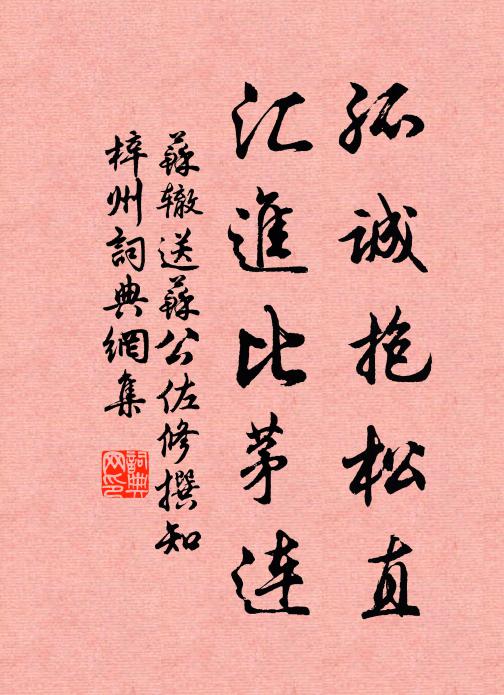 孤诚抱松直
汇進比茅連
蘇辙送蘇公佐修撰知
梓州詞典網集
詞典
网印